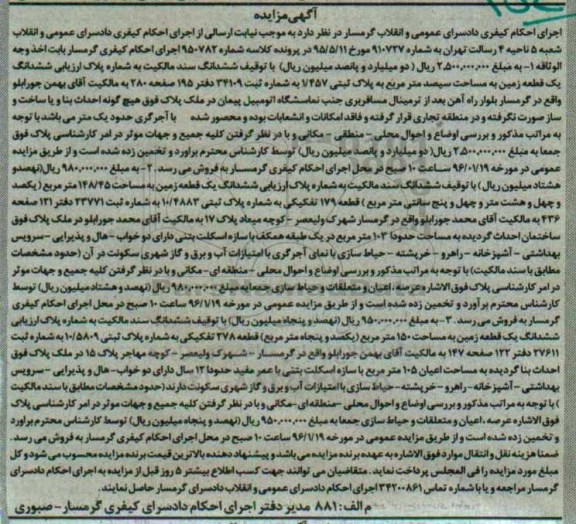 آگهی مزایده
اجرای احکام کیفری دادسرای عمومی و انقلاب گرمسار در نظر دارد به موجب نیابت ارسالی از اجرای احکام کیفری دادسرای عمومی و انقلاب
شعبه ۵ ناحیه ۴ رسالت تهران به شماره ۹۱۰۷۲۷ مورخ ۹۵/۵/۱۱ در پرونده کلاسه شماره ۹۵۰۷۸۲ اجرای احکام کیفری گرمسار بابت اخذ وجه
الوثاقه ۱- به مبلغ ۲,۵۰۰,۰۰۰,۰۰۰ ریال ( دو میلیارد و پانصد میلیون ریال) با توقیف ششدانگ سند مالکیت به شماره پلاک ارزیابی ششدانگ
یک قطعه زمین به مساحت سیصد متر مربع به پلاک ثبتی ۱/۴۵۷ به شماره ثبت ۳۴۱۰۹ دفتر ۱۹۵ صفحه ۲۸۰ به مالکیت آقای بهمن جورابلو
واقع در گرمسار بلوار راه آهن بعد از ترمینال مسافربری جنب نمایشگاه اتومبیل پیمان در ملک پلاک فوق هیچ گونه احداث بنا و یا ساخت و
ساز صورت نگرفته و در منطقه تجاری قرار گرفته و فاقد امکانات و انشعابات بوده و محصور شده با آجرگری حدود یک متر می باشد با توجه
به مراتب مذکور و بررسی اوضاع و احوال محلی – منطقه ای – مکانی و با در نظر گرفتن کلیه جمیع و جهات موثر در امر کارشناسی پلاک فوق
جمعا به مبلغ ۲,۵۰۰,۰۰۰,۰۰۰ ریال( دو میلیارد و پانصد میلیون ریال) توسط کارشناس محترم براورد و تخمین زده شده است و از طریق مزایده
عمومی در مورخه ۹۶/۰۱/۱۹ ساعت ۱۰ صبح در محل اجرای احکام کیفری گرمسار به فروش می رسد. ۲- به مبلغ ۹۸۰,۰۰۰,۰۰۰ ریال(نهصد و
هشتاد میلیون ریال) با توقیف ششدانگ سند مالکیت به شماره پلاک ارزیابی ششدانگ یک قطعه زمین به مساحت ۱۴۸/۴۵ متر مربع ( یکصد
و چهل و هشت متر و چهل و پنج سانتی متر مربع ) قطعه ۱۷۹ تفکیکی به شماره پلاک ثبتی ۱۰/۴۸۸۳ به شماره ثبت ۲۳۷۷۱ دفتر ۱۳۱ صفحه
۴۳۶ به مالکیت آقای محمد جورابلو واقع در گرمسار شهرک ولیعصر – کوچه میعاد پلاک ۱۷ به مالکیت آقای محمد جورابلو در ملک پلاک فوق
ساختمان احداث گردیده به مساحت حدودا ۱۰۳ متر مربع در یک طبقه همکف با سازه اسکلت بتنی دارای دو خواب – هال و پذیرایی – سرویس
بهداشتی – آشپز خانه – راهرو – خرپشته – حیاط سازی با نمای آجرگری با امتیازات آب و برق و گاز شهری سکونت در آن (حدود مشخصات
مطابق با سند مالکیت) با توجه به مراتب مذکور و بررسی اوضاع و احوال محلی – منطقه ای – مکانی و با در نظر گرفتن کلیه جمیع و جهات موثر در
امر کارشناسی پلاک فوق الاشاره عرصه ، اعیان و متعلقات و حیاط سازی جمعا به مبلغ ۹۸۰,۰۰۰,۰۰۰ ریال (نهصد و هشتاد میلیون ریال) توسط
کارشناس محترم برآورد و تخمین زده شده است و از طریق مزایده عمومی در مورخه ۹۶/۱/۱۹ ساعت ۱۰ صبح در محل اجرای احکام کیفری
گرمسار به فروش می رسد. ۳- به مبلغ ۹۵۰,۰۰۰,۰۰۰ ریال (نهصد و پنجاه میلیون ریال) با توقیف ششدانگ سند مالکیت به شماره پلاک ارزیابی
ششدانگ یک قطعه زمین به مساحت ۱۵۰ متر مربع (یکصد و پنجاه متر مربع) قطعه ۲۷۸ تفکیکی به شماره پلاک ثبتی ۱۰/۵۸۰۹ به شماره ثبت
۲۷۶۱۱ دفتر ۱۲۲ صفحه ۱۴۷ به مالکیت آقای بهمن جورابلو واقع در گرمسار – شهرک ولیعصر – کوچه مهاجر پلاک ۱۵ در ملک پلاک فوق
احداث بنا گردیده به مساحت اعیان ۱۰۵ متر مربع با سازه اسکلت بتنی با عمر مفید حدودا ۱۲ سال دارای دو خواب- هال و پذیرایی – سرویس
بهداشتی – آشپزخانه – راهرو – خرپشته – حیاط سازی با امتیازات آب و برق و گاز شهری سکونت دارند (حدود مشخصات مطابق با سند مالکیت
) با توجه به مراتب مذکور و بررسی اوضاع و احوال محلی –منطقه ای-مکانی و با در نظر گرفتن کلیه جمیع و جهات موثر در امر کارشناسی پلاک
فوق الاشاره عرصه ،اعیان و متعلقات و حیاط سازی جمعا به مبلغ ۹۵۰,۰۰۰,۰۰۰ ریال (نهصد و پنجاه میلیون ریال) توسط کارشناس محترم براورد
و تخمین زده شده است و از طریق مزایده عمومی در مورخه ۹۶/۱/۱۹ ساعت ۱۰ صبح در محل اجرای احکام کیفری گرمسار به فروش می رسد.
ضمنا هزینه نقل و انتقال موارد فوق الاشاره به عهده برنده مزایده می باشد و پیشنهاد دهنده بالاترین قیمت برنده مزایده محسوب می شود و کل
مبلغ مورد مزایده را فی المجلس پرداخت نماید. متقاضیان می توانند جهت کسب اطلاع بیشتر ۵ روز قبل از مزایده به اجرای احکام دادسرای
گرمسار مراجعه و یا با شماره تماس ۳۴۲۰۰۸۶۱ اجرای احکام دادسرای عمومی و انقلاب دادسرای گرمسار حاصل نمایند.
م الف: ۸۸۱ مدیر دفتر اجرای احکام دادسرای کیفری گرمسار- صبوری